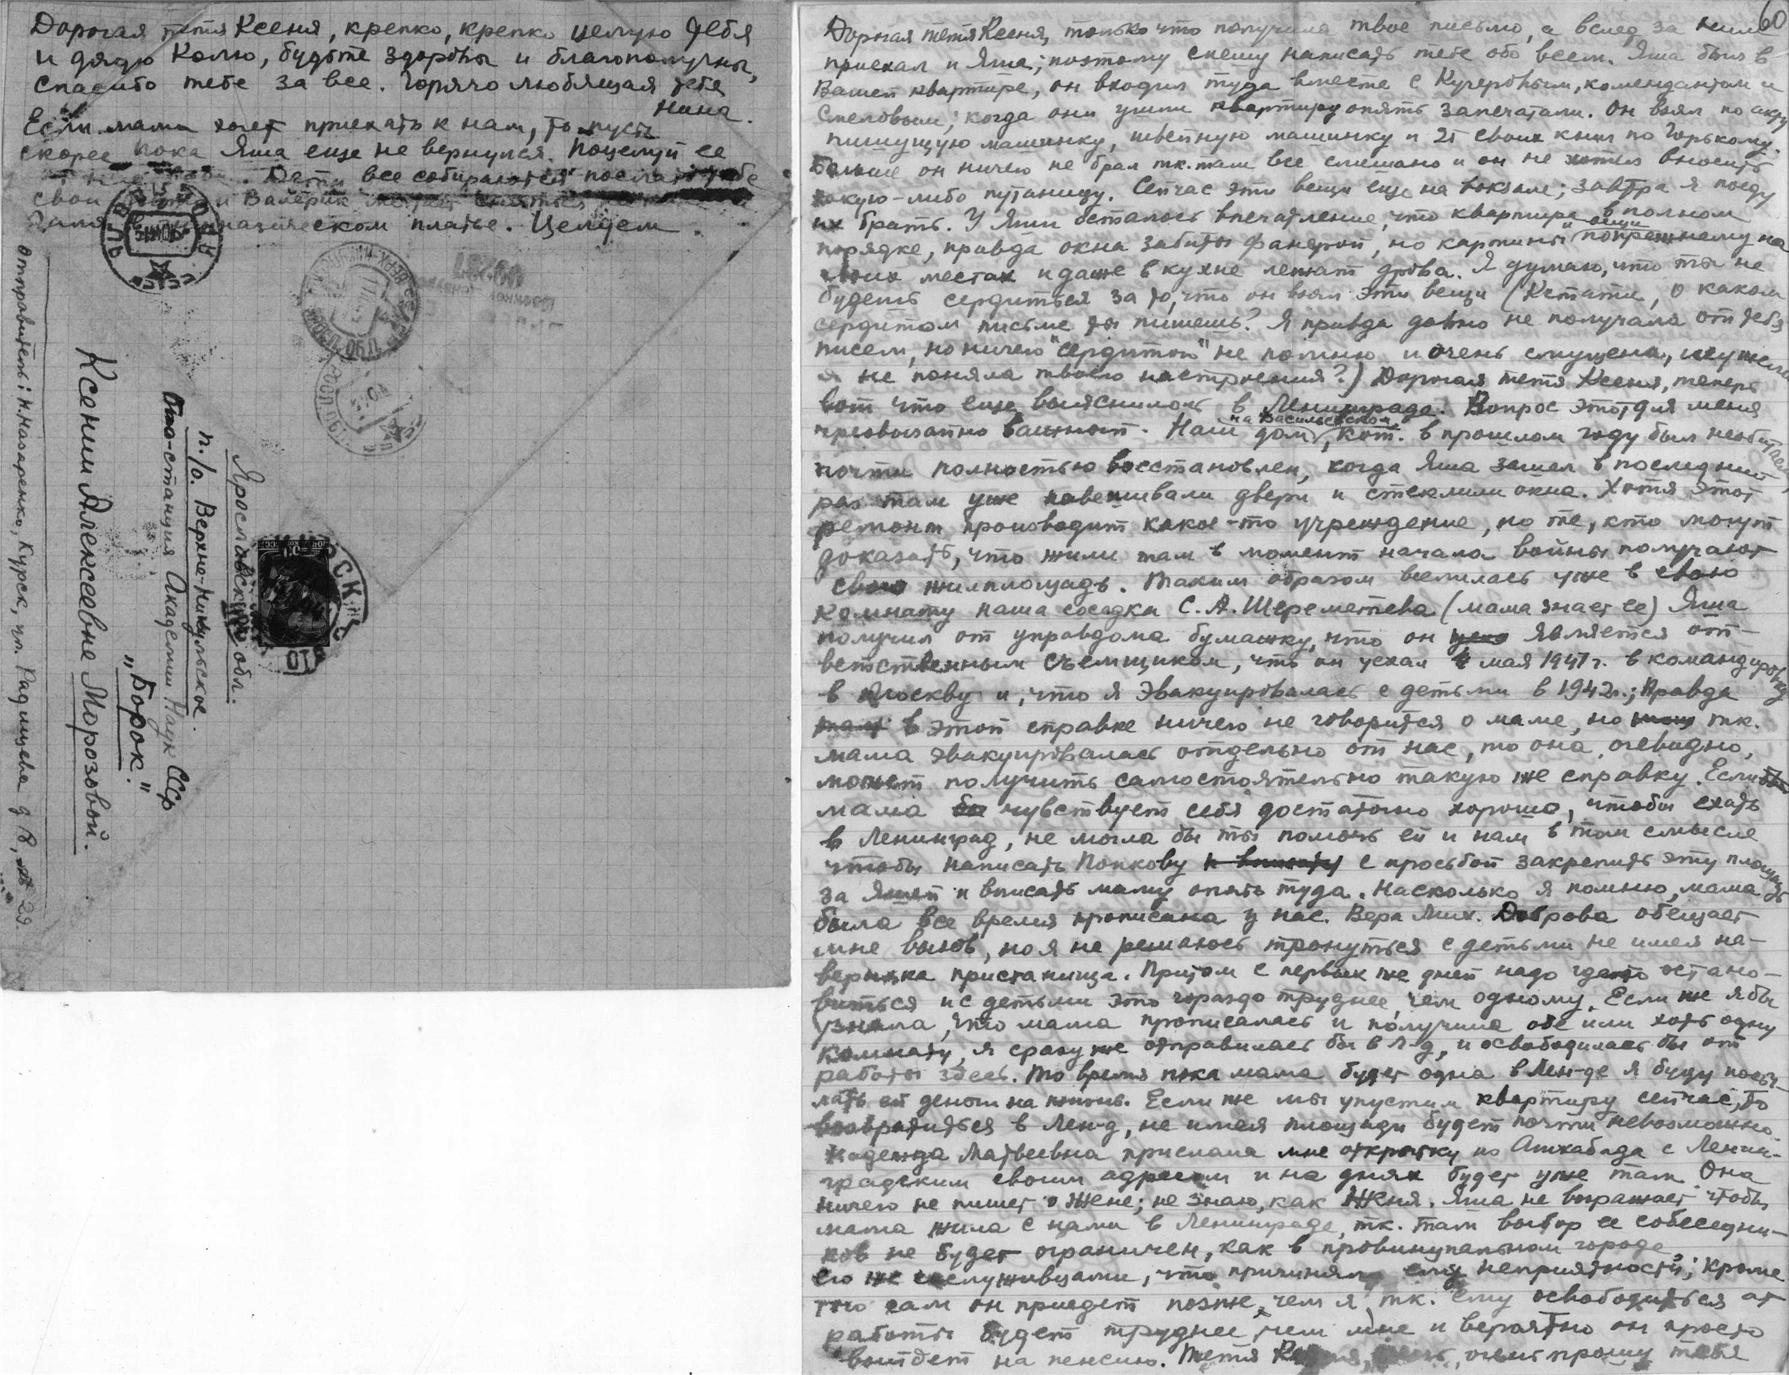 Дорогая тетя Ксеня, крепко, крепко целую тебя
и дядю Колю, будьте здоровы и благополучны,
спасибо тебе за все. Горячо любящая тебя
Нина.
Если мама хочет приехать к нам, то пусть
скорее пока Яша еще не вернулся. Поцелуй ее
Дети все собираются послать тебе
свои и Валерик
гимназическом платье. Целуем
отправитель: Н. Назаренко, Курск, ул. Радищева д 8, 29.
Ярославской обл.
п./о. Верхне-Никульское
станция Академии Наук СССР
"Борок".
Ксении Алексеевне Морозовой.
60
Дорогая тетя Ксеня, только что получила твое письмо, а вслед за ним
приехал и Яша; поэтому спешу написать тебе обо всем. Яша был в
Вашей квартире, он входил туда вместе с Кучеровым, комендантом и
когда они ушли квартиру опять запечатали. Он взял по акту
пишущую машинку, швейную машинку и 21 своих книг по Горькому.
Больше он ничего не брал т.к. там все описано и он не хотел вносить
какую-либо путаницу. Сейчас эти вещи еще на вокзале; завтра я поеду
их брать. У Яши осталось впечатление, что квартира в полном
порядке, правда окна забиты фанерой, но картины и вещи по прежнему на
своих местах и даже в кухне лежат дрова. Я думаю, что ты не
будешь сердиться за то, что он взял эти вещи (Кстати, о каком
сердитом письме ты пишешь? Я правда давно не получала от тебя
писем, но ничего "сердитого" не помню и очень смущена, неужели
я не поняла твоего настроения?) Дорогая тетя Ксеня, теперь
вот что еще выяснилось в Ленинграде. Вопрос этот для меня
чрезвычайно важный. Наш дом на Васильевском, кот. в прошлом году был необитаем
почти полностью восстановлен, когда Яша зашел в последний
раз там уже навешивали двери и стеклили окна. Хотя этот
ремонт производит какое-то учреждение, но те, кто могут
доказать, что жили там в момент начала войны получают
свою жилплощадь. Таким образом вселилась уже в свою
комнату наша соседка С. А. Шереметева (мама знает ее) Яша
получил от управдома бумажку, что он является от-
ветственным съемщиком, что он уехал 4 мая 1941 г. в командировку
в Москву и, что я эвакуировалась с детьми в 1942 г.; Правда
в этой справке ничего не говорится о маме, но т.к.
мама эвакуировалась отдельно от нас, то она, очевидно,
может получить самостоятельно такую же справку. Если
мама чувствует себя достаточно хорошо, чтобы ехать
в Ленинград, не могла бы ты помочь ей и нам в том смысле
чтобы написать Попкову с просьбой закрепить эту площадь
за Яшей и вписать маму опять туда. Насколько я помню, мама
была все время прописана у нас. Вера Мих. Доброва обещает
мне вызов, но я не решаюсь тронуться с детьми не имея на-
верняка пристанища. Притом с первых же дней надо где-то остано-
виться и с детьми это гораздо труднее, чем одному. Если же я бы
узнала, что мама прописалась и получила обе или хоть одну
комнату, я сразу же отправилась бы в Л-д, и освободилась бы от
работы здесь. То время пока мама будет одна в Лен-де я буду посы-
лать ей деньги на жизнь. Если же мы упустим квартиру сейчас, то
возвратиться в Лен-д, не имея площади будет почти невозможно.
Надежда Матвеевна прислала мне открытку из Ашхабада с Ленин-
градским своим адресом и на днях будет уже там. Она
ничего не пишет о Жене; не знаю, как Женя. Яша не возражает чтобы
мама жила с нами в Ленинграде, т.к. там выбор ее собеседни-
ков не будет ограничен, как в провинциальном городе
его же сослуживцами, что причиняло ему неприятности; кроме
того сам он приедет позже, чем я т.к. ему освободиться от
работы будет труднее, чем мне и вероятно он просто
выйдет на пенсию. Тетя Ксеня, очень прошу тебя